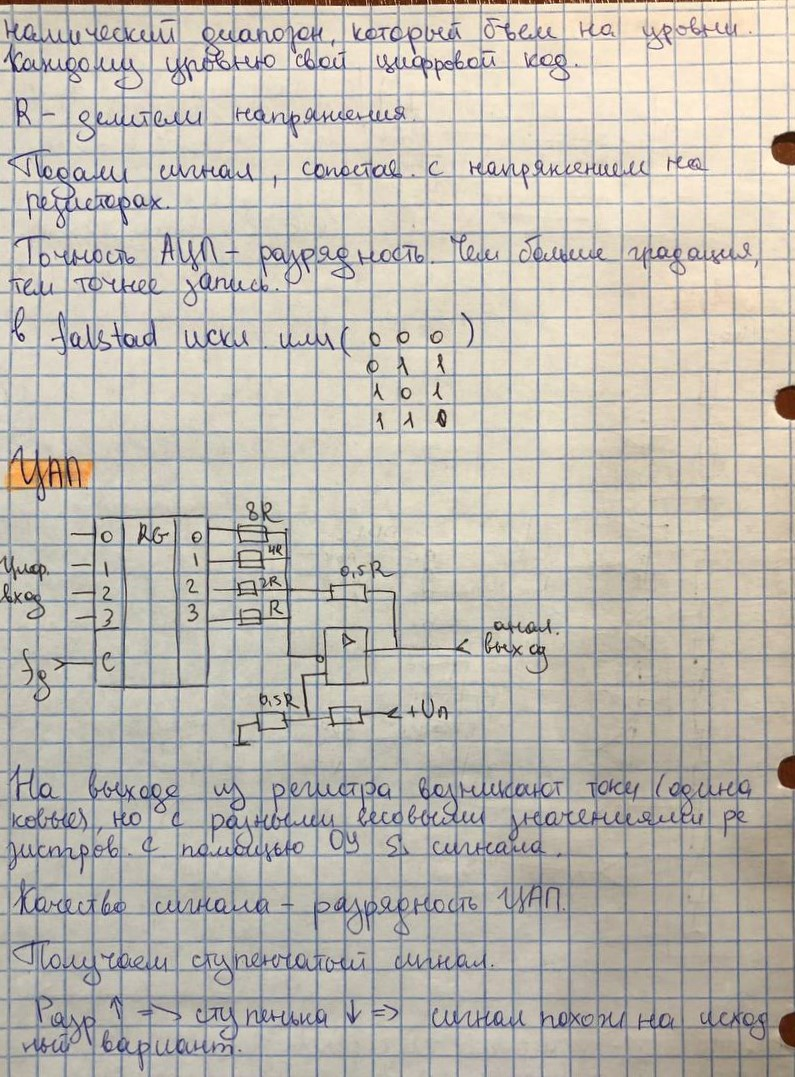 намический диапозон, который бьем на уровни.
Каждому уровню свой цифровой код.
R – делители напряжения.
Подали сигнал, сопостав. с напряжением на
резисторах.
Точность АЦП – разрядность. Чем больше градация,
тем точнее запись.
в falstad искл. или ( 0 0 0 )
0 1 1
1 0 1
1 1 0
ЦАП
8R
0 RG 0
4R
1 1
0,5R
Цифр.
вход
2 2
2R
3 3
R
анал.
выход
fg
C
0,5R
+Uп
На выходе из регистра возникают токи (одина
ковые), но с разными весовыми значениями ре
зистров. С помощью ОУ Σ сигнала.
Качество сигнала – разрядность ЦАП.
Получаем ступенчатый сигнал.
Разр ↑ => ступенька ↓ => сигнал похож на исход
ный вариант.